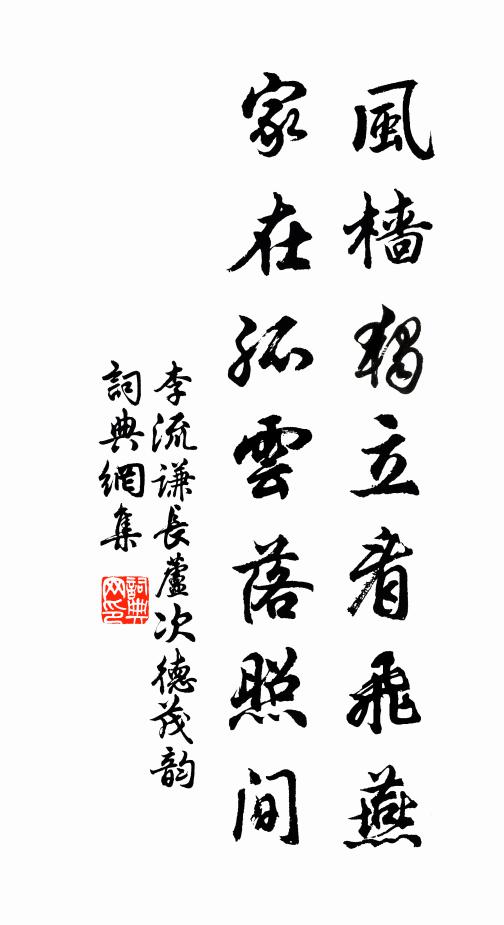 風檣獨立看飛燕
家在孤雲落照間
李流謙長蘆次德茂韵
詞典網集
詞典网印